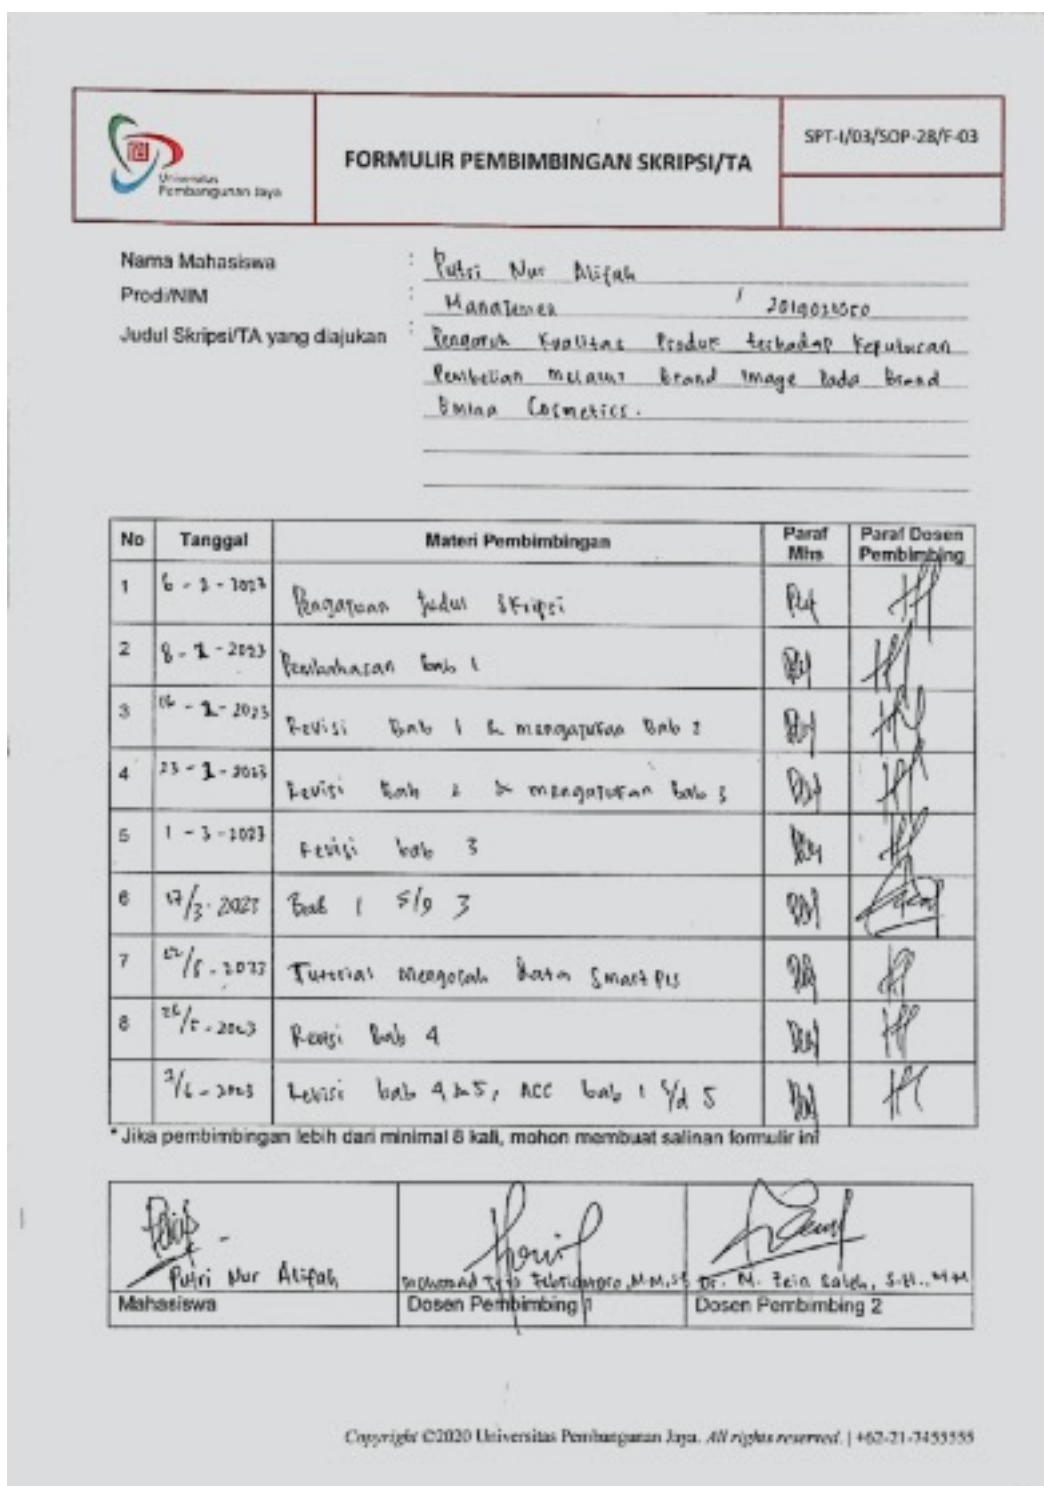 Universitas
Pembangunan Jaya
FORMULIR PEMBIMBINGAN SKRIPSI/TA
SPT-I/03/SOP-28/F-03
Nama Mahasiswa : Putri Nur Alifah
Prodi/NIM : Manajemen /
Judul Skripsi/TA yang diajukan : Pengaruh Kualitas Produk terhadap Keputusan
Pembelian melalui Brand Image Pada Brand
Emina Cosmetics.
No Tanggal Materi Pembimbingan Paraf Mhs Paraf Dosen Pembimbing
1 6 - 2 - 2023 Pengajuan Judul Skripsi
2 8 - 2 - 2023 Pembahasan Bab 1
3 16 - 2 - 2023 Revisi Bab 1 & mengajukan Bab 2
4 23 - 2 - 2023 Revisi Bab 2 & mengajukan Bab 3
5 1 - 3 - 2023 Revisi bab 3
6 17/3 - 2023 Bab 1 s/d 3
7 2023 Tutorial Mengolah Data Smart Pls
8 26/5 - 2023 Revisi Bab 4
2/6 - 2023 Revisi bab 4 & 5, ACC bab 1 s/d 5
* Jika pembimbingan lebih dari minimal 8 kali, mohon membuat salinan formulir ini
Putri Nur Alifah
Mahasiswa
Mohamad Febriantoro, M.M
Dosen Pembimbing 1
Dr. M. Zein Saleh, S.H., M.M
Dosen Pembimbing 2
Copyright ©2020 Universitas Pembangunan Jaya. All rights reserved. | +62-21-7455555